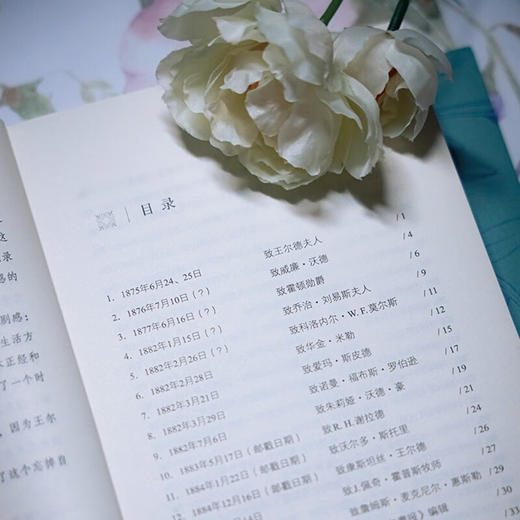 这
录
的
别感：
生活方
正经和
了一个时
因为王尔
了这个忘掉自
目录
1. 1875年6月24、25日 致王尔德夫人 /1
2. 1876年7月10日（？） 致威廉·沃德 /4
3. 1877年6月16日（？） 致霍顿勋爵 /6
4. 1882年1月15日（？） 致乔治·刘易斯夫人 /9
5. 1882年2月26日（？） 致科洛内尔·W.F.莫尔斯 /11
6. 1882年2月28日 致华金·米勒 /12
7. 1882年3月21日 致爱玛·斯皮德 /15
8. 1882年3月29日 致诺曼·福布斯·罗伯逊 /17
9. 1882年7月6日 致朱莉娅·沃德·豪 /19
10. 1883年5月17日（邮戳日期） 致R.H.谢拉德 /21
11. 1884年1月22日（邮戳日期） 致沃尔多·斯托里 /24
12. 1884年12月16日（邮戳日期） 致康斯坦丝·王尔德 /26
致J.佩奇·霍普斯牧师 /27
致詹姆斯·麦克尼尔·惠斯勒 /29
编辑 /30
/33